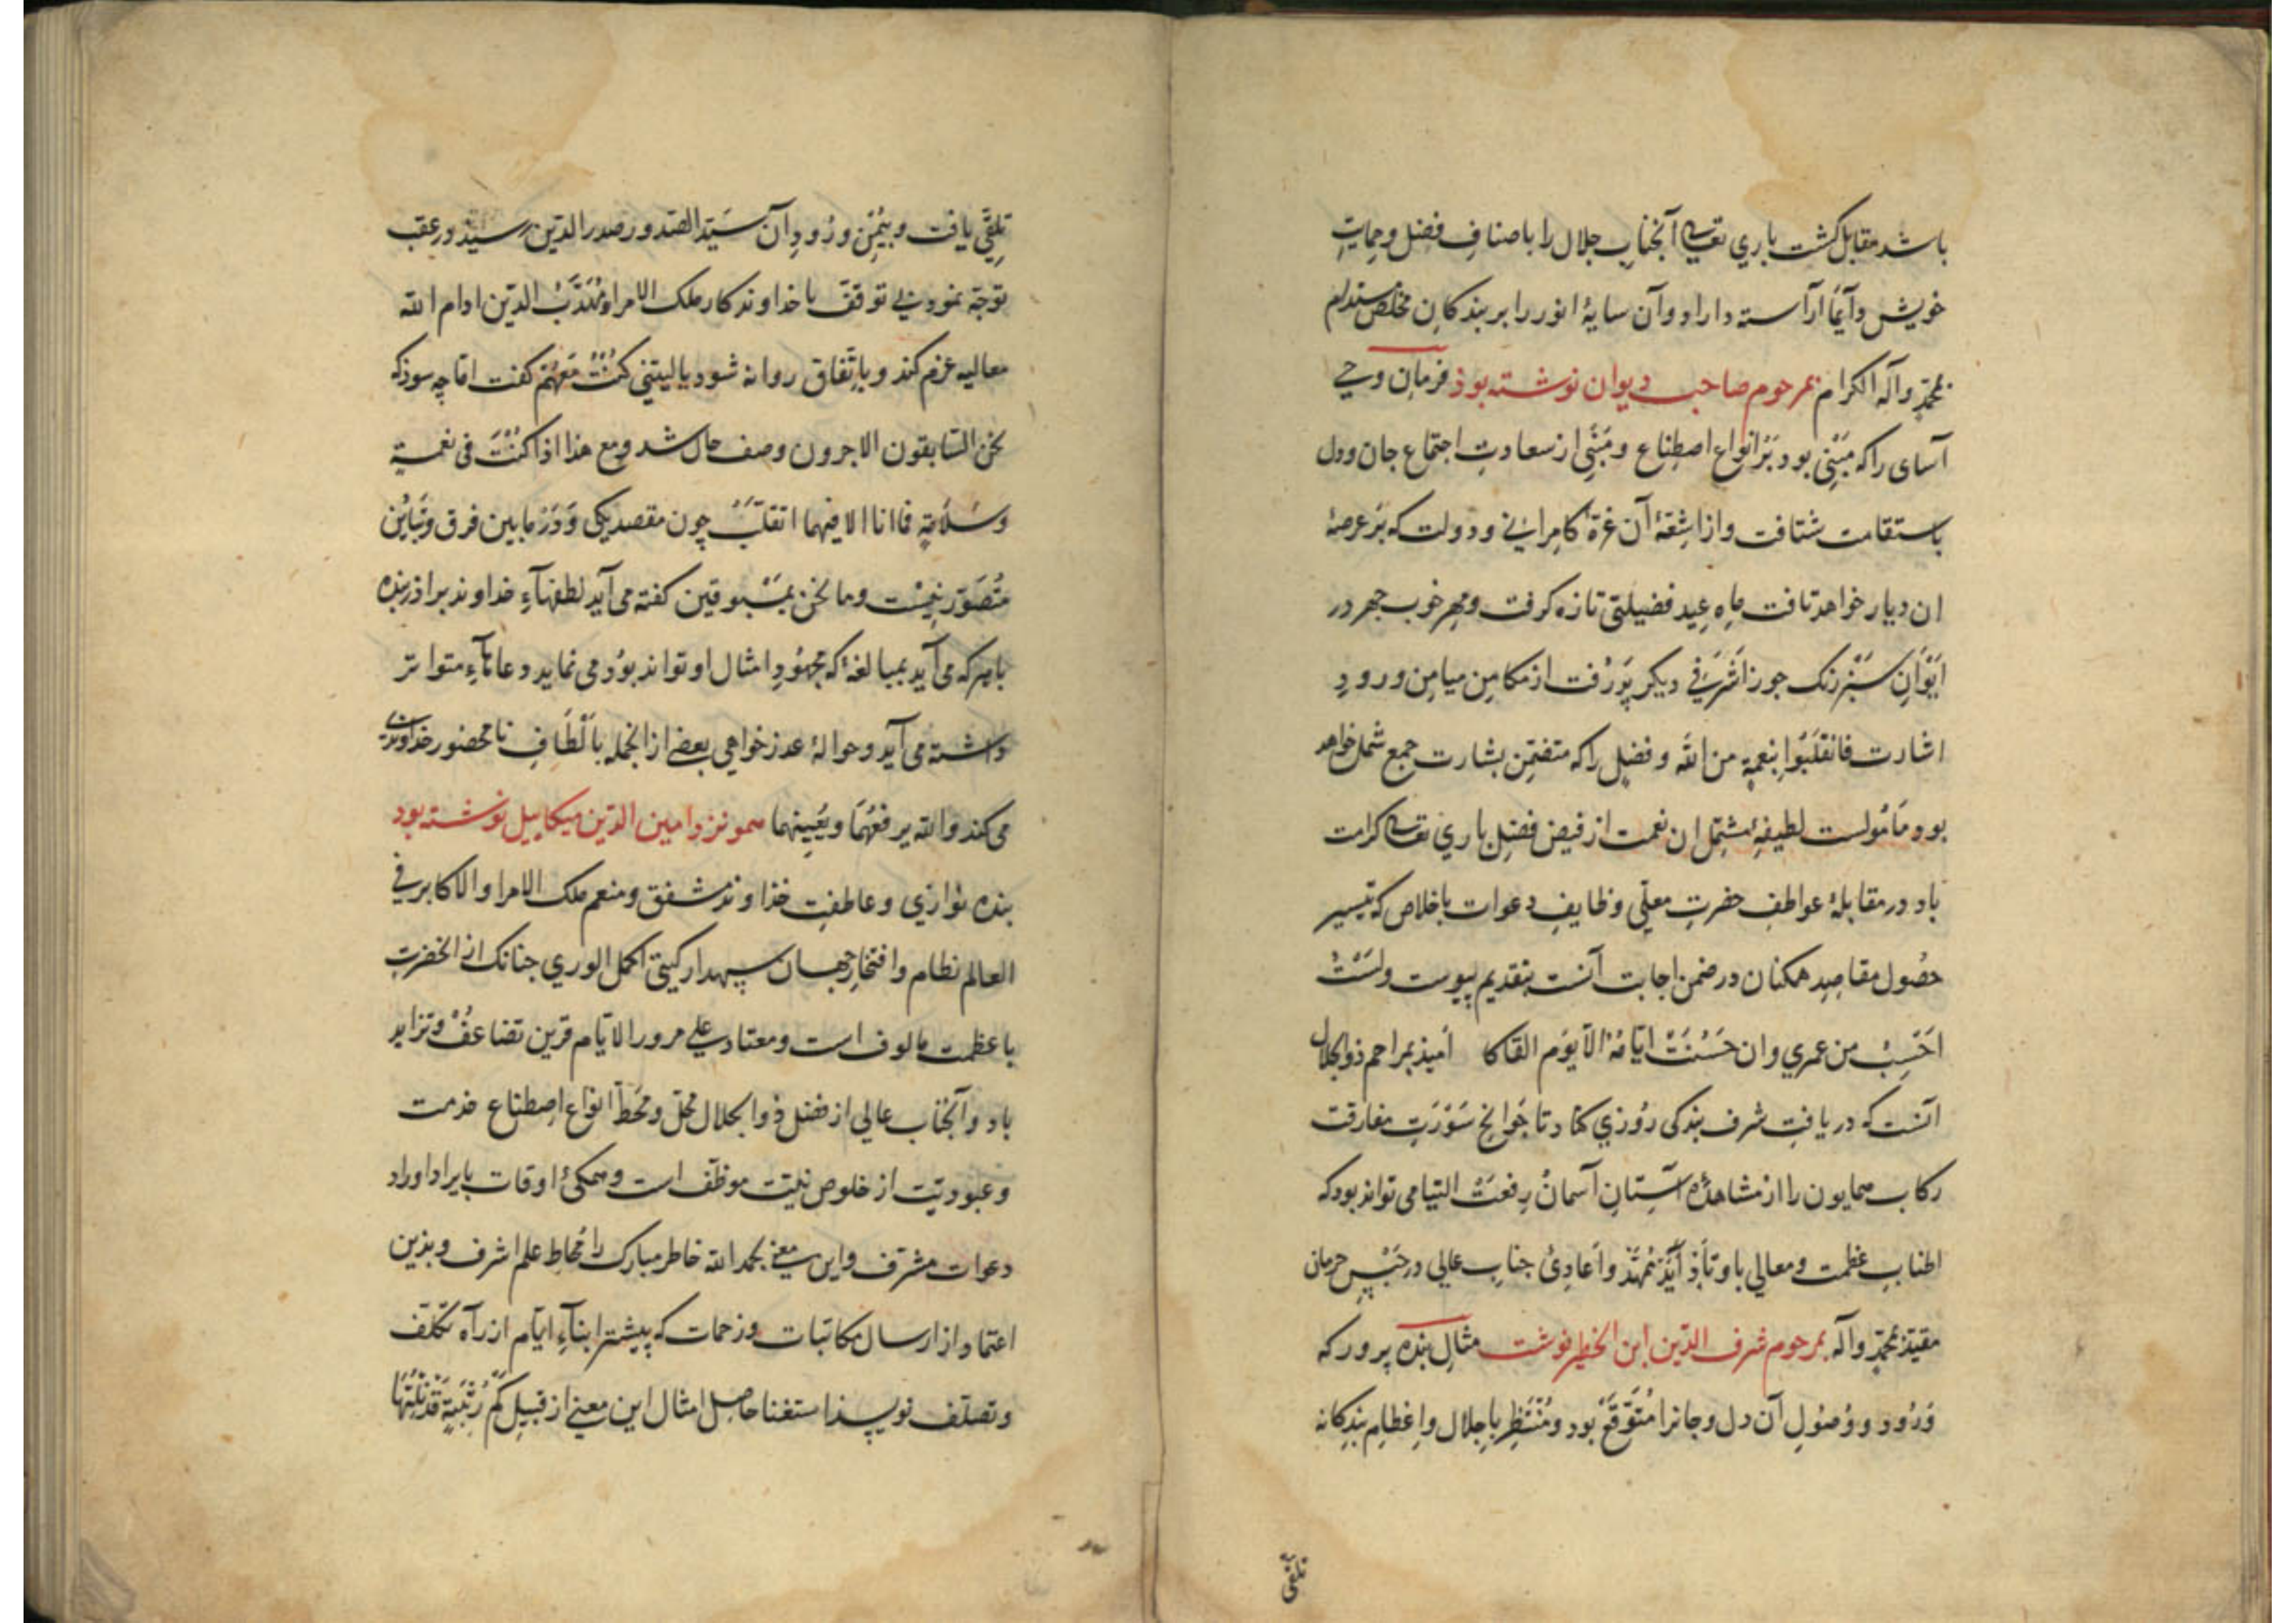 باشد مقابل گشت باری تعالی آنجناب جلال را باصناف فضل و حمایت
خویش دایماً آراسته داراد و آن سایهٔ انور را بر بندکان مخلص مستدام
بمحمّدٍ وآله الکرام بمرحوم صاحب دیوان نوشته بوذ فرمان وحی
آسای را که مَبْنِی بود بَرْ انواع اصطِناع و مَبْنِی از سعادتِ اجتماع جان و دل
باستقامت شتافت و از اشِعّهٔ آن غرّهٔ کامرانی و دولت که بَر عرصهٔ
ان دیار خواهد تافت ماهِ عید فضیلتی تازه کرفت و مهر خوب چهر در
ایْوانِ سَبْز رنک جوزا شَرَفی دیکر پَذرفت از مکامِن میامِن ورودِ
اشارت فانْقَلَبُوا بِنعمةٍ من الله و فضلٍ را که متضمّن بشارت جمع شمل خواهد
بود مَأمُولست لطیفهٔ مشتمل ان نعمت از فیض فضلِ باری تعالی کرامت
باد در مقابلهٔ عواطفِ حضرتِ معلّی وظایفِ دعوات باخلاص که تیسیر
حصُول مقاصِدِ همکنان در ضمن اجابت آنست بتقدیم پیوست ولَسْتُ
احْسِبُ من عمری وان حَسُنَتْ ایّامُهُ الّا یَوم القاکا امیذ بمراحم ذو الجلال
انست که دریافتِ شرف بندکی رُوزی کناد تا جَوانحِ سَوْرَتِ مفارقت
رکاب همایون را از مشاهدهٔ آستانِ آسمانْ رِفعَتْ التیامی تواند بود که
اطنابِ عظمت و معالی باوتادِ اَبَدْ مُمهّدْ واَعادِیٔ جنابِ عالی در حَبْسِ حرمان
مقیّد بمحمّدٍ وآله بمرحوم شرف الدّین ابن الخطیر نوشت مثالِ بنده پرور که
وُرُود و وُصُولِ آن دل و جانرا مُتَوَقَّعْ بود و مُنْتَظِر باِجلال واِعْظامِ بندکانه
تلقّی
تلقّی یافت و بیُمْنِ ورُودِ آن سَیّد الصّدور صدر الدّین رسید در عقب
توجّه نمود بی توقّف با خداوندکار ملک الامرا و مُهذّبُ الدّین ادام الله
معالیه عزم کند و باتّفاق روانه شود یا لیتنی کُنْتُ مَعَهُمْ گفت امّا چه سوذ که
نحن السّابقون الاجرون وصف حال شد و مع هذا اذا کُنْتَ فی نعمةٍ
وسَلامَةٍ فاانا الا فیهما اتقلّبُ چون مقصد یکی و دَرْ ما بین فرق و تَبایُن
مُتَصَوَّر نیست وما نحن بمَسْبوقین کفته می آید لطفهآءِ خداوند براذر بنده
باهر که می آید بمبالغهٔ که مجهُودِ امثال او تواند بوُد می نماید دعاهآءِ متواتر
داشته می آید و حوالهٔ عذر خواهی بعضی از انجمله باَلْطافِ تا محضور خداوندی
می کند والله یرفعُهُما ویُعینهما همو نزد امین الدّین میکاییل نوشته بود
بنده نوازی و عاطفتِ خذاوند مشفق و منعم ملک الامرا والاکابر فی
العالم نظام و افتخارِ جهان سپهدار کیتی اکمل الوری چنانک ازان حضرت
با عظمت مالوف است و معتاد علی مرور الایّام قرین تضاعف و تزاید
باد و آنجناب عالی از فضل ذو الجلال محلّ و مَحَطّ انوٰاع اصطناع خدمت
و عبودیّت از خلوص نیّت موظّف است و همکیٔ اوقات بایراد اوراد
دعوات مشرّف و این معنی بحمد الله خاطر مبارک را مُحاط علم اشرف و بذین
اعتماد از ارسال مکاتبات و زحمات که پیشتر ابنآءِ ایّام از رآه تکلّف
و تصلّف نویسذ استغنا حاصل امثال این معنی از قبیل کَمْ رُتْبَةٍ قَدْ نِلْتَهَا